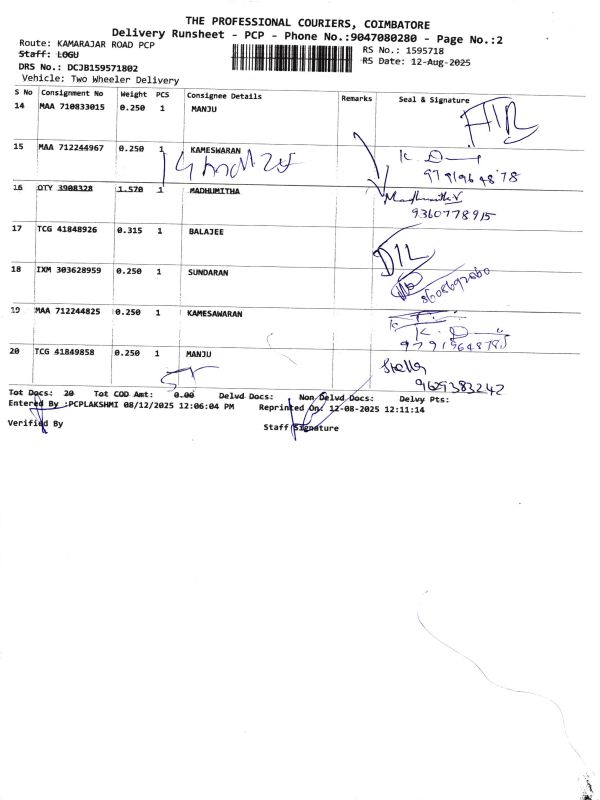 THE PROFESSIONAL COURIERS, COIMBATORE
Delivery Runsheet - PCP - Phone No.:9047080280 - Page No.:2
Route: KAMARAJAR ROAD PCP
RS No.: 1595718
Staff: LOGU
RS Date: 12-Aug-2025
DRS No.: DCJB159571802
Vehicle: Two Wheeler Delivery
S No Consignment No Weight PCS Consignee Details Remarks Seal & Signature
14 MAA 710833015 0.250 1 MANJU
15 MAA 712244967 0.250 1 KAMESWARAN
K. D
9791964878
16 QTY 3908328 1.570 1 MADHUMITHA
Madhumitha V
9360778915
17 TCG 41848926 0.315 1 BALAJEE
DIL
18 IXM 303628959 0.250 1 SUNDARAN
8608692060
19 MAA 712244825 0.250 1 KAMESAWARAN
K. D
20 TCG 41849858 0.250 1 MANJU
Stella
9629383242
Tot Docs: 20 Tot COD Amt: 0.00 Delvd Docs: Non Delvd Docs: Delvy Pts:
Entered By :PCPLAKSHMI 08/12/2025 12:06:04 PM Reprinted On: 12-08-2025 12:11:14
Verified By Staff Signature